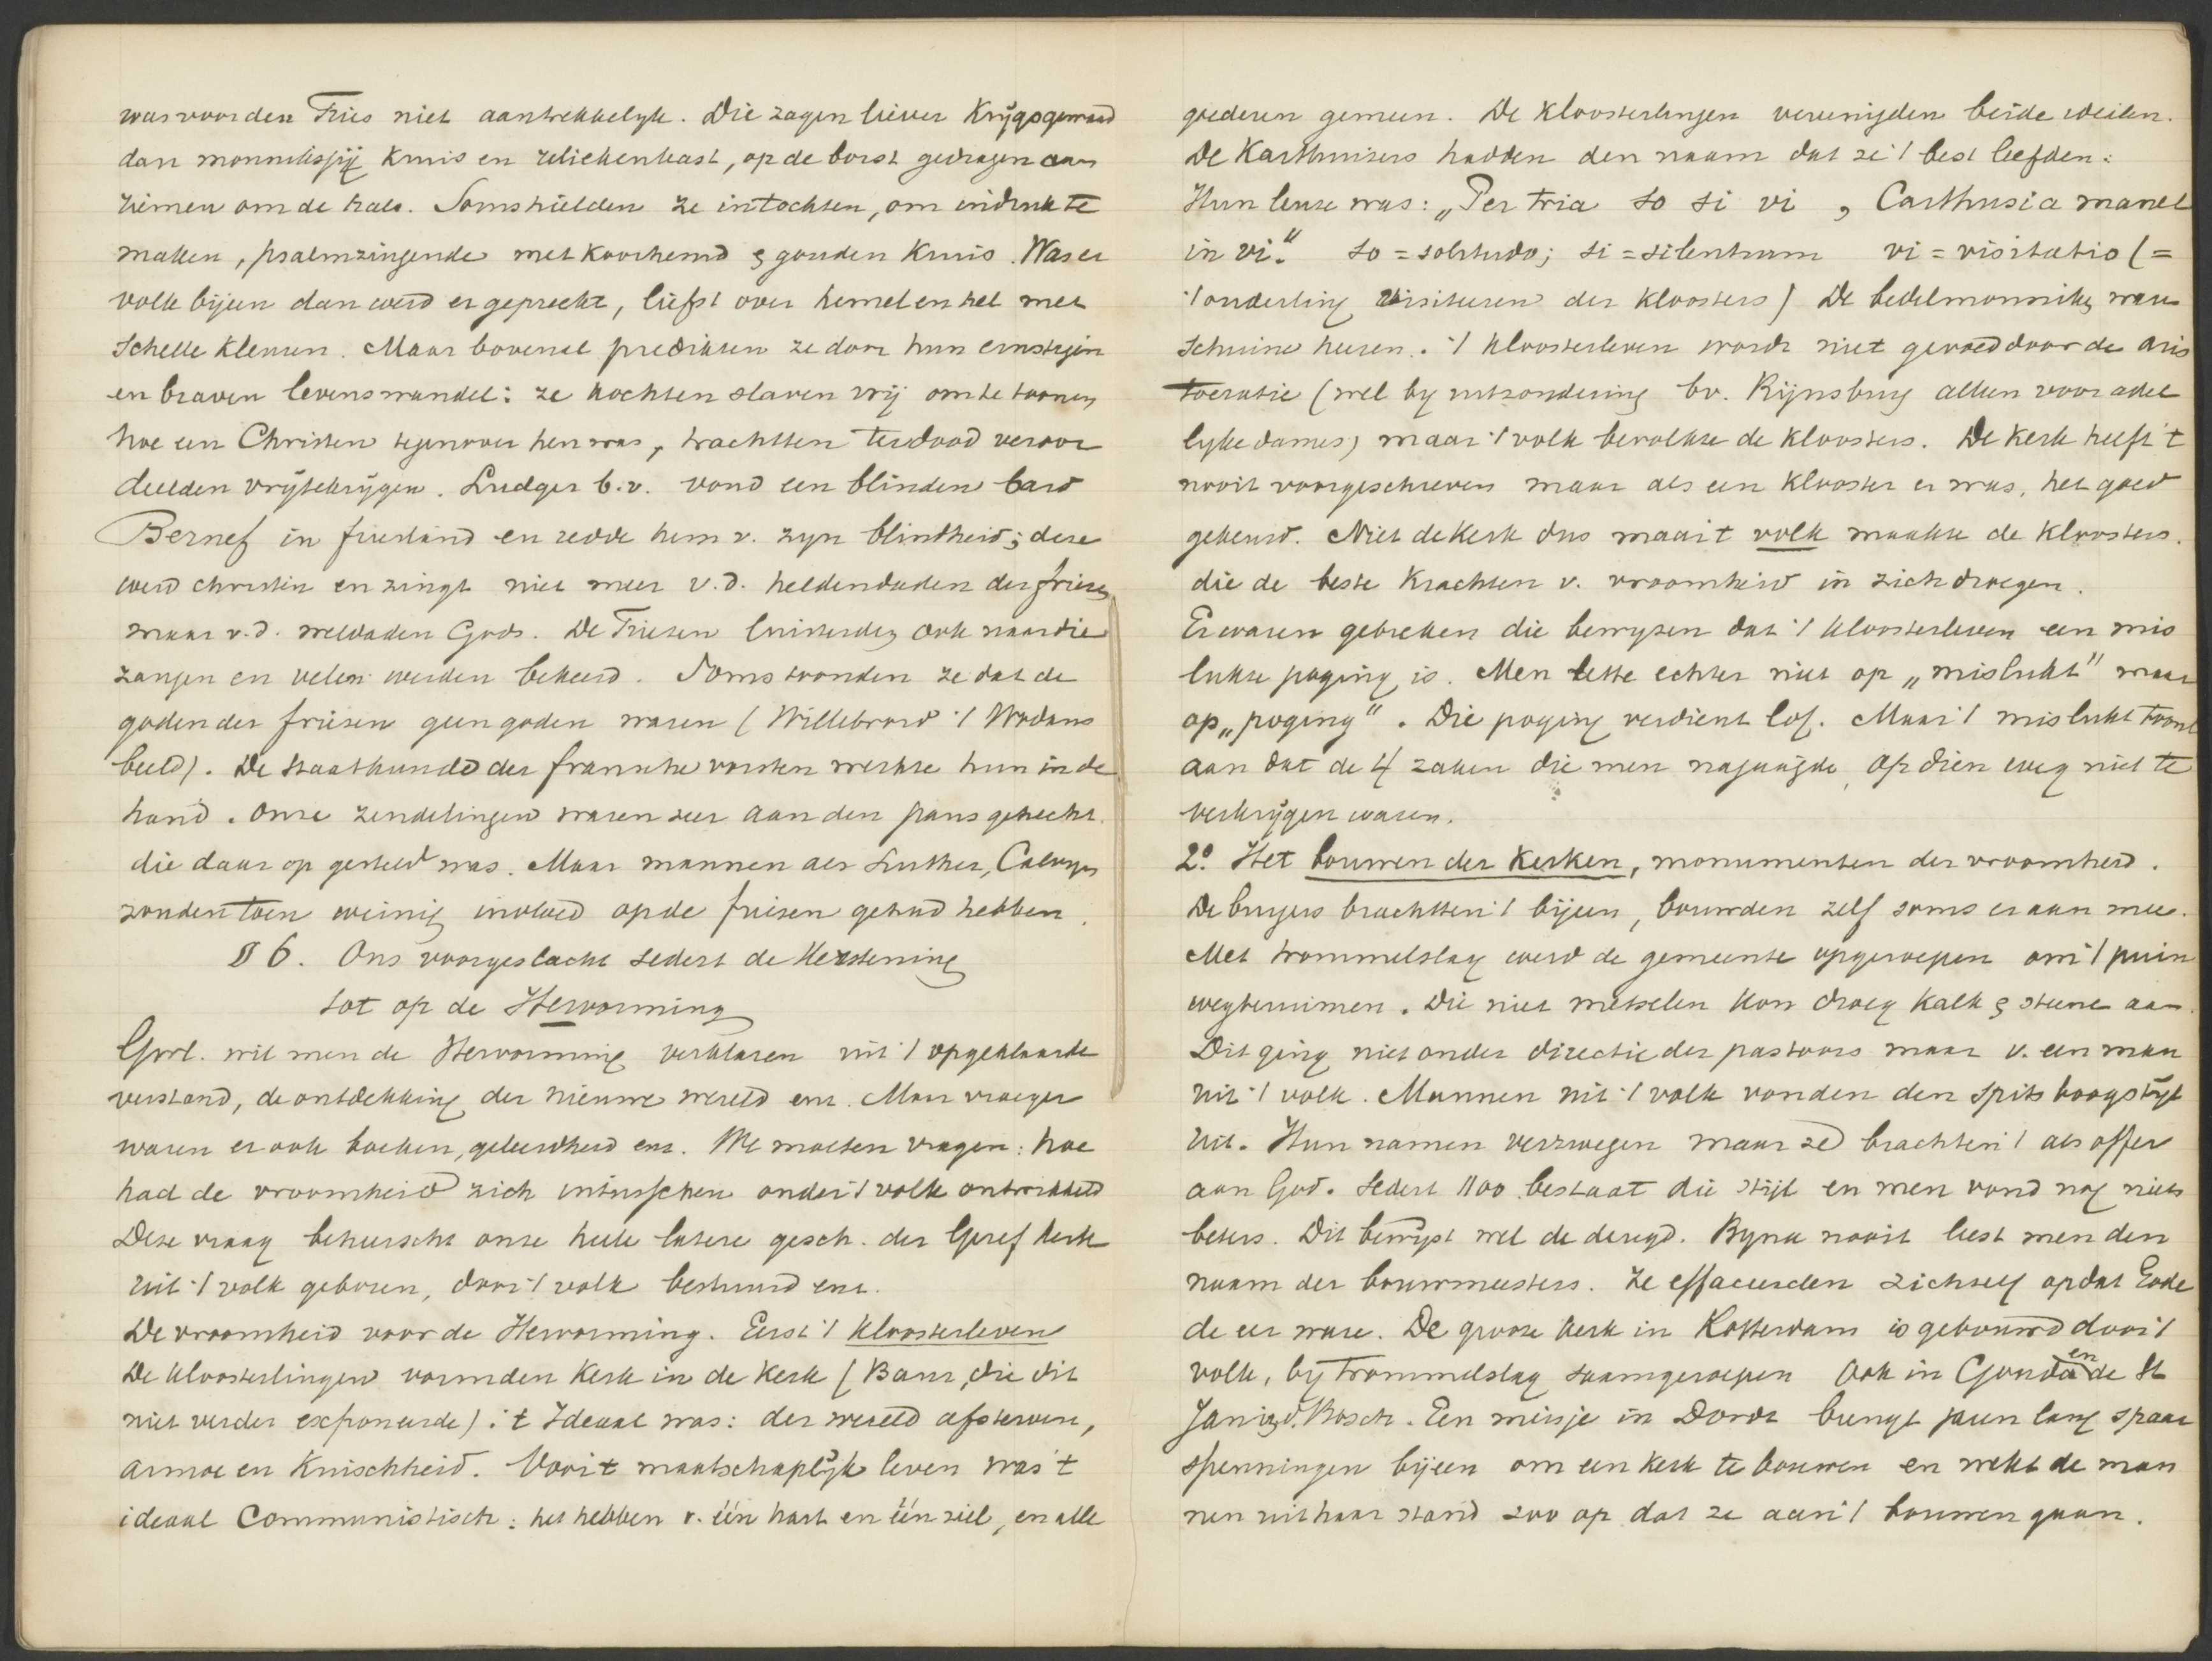 was voor den Fries niet aantrekkelyk. Die zagen liever Krijgsgewaad
dan monnikspij Kruis en reliekenkast, op de borst gedragen aan
riemen om de hals. Soms hielden ze intochten, om indruk te
maken, psalmzingende met koorhemd & gouden Kruis. Was er
volk bijeen dan werd er gepreekt, liefst over hemel en hel met
schelle kleuren. Maar bovenal predikten ze door hun ernstigen
en braven levenswandel: ze kochten slaven vrij om te toonen
hoe een Christen tegenover hen was, trachtten ter dood veroor
deelden vrij te krijgen. Ludger b.v. vond een blinden bard
Bernef in friesland en redde hem v. zyn blindheid; deze
werd christen en zingt niet meer v.d. heldendaden der friezen
maar v.d. weldaden Gods. De Friezen luisterden ook naar die
zangen en velen werden bekeerd. Soms toonden ze dat de
goden der friezen geen goden waren (Willebrord 't Wodans
beeld). De Staatkunde der fransche vorsten werkte hun in de
hand. Onze zendelingen waren zeer aan den paus gehecht.
die daar op gesteld was. Maar mannen als Luther, Calvyn
zouden toen weinig invloed op de friezen gehad hebben.
§ 6. Ons voorgeslacht sedert de Kerstening
tot op de Hervorming
Gwl. wil men de Hervorming verklaren uit 't opgeklaarde
verstand, de ontdekking der nieuwe wereld enz. Maar vroeger
waren er ook boeken, geleerdheid enz. We moeten vragen: hoe
had de vroomheid zich intusschen onder 't volk ontwikkeld
Deze vraag beheerscht onze heele latere gesch. der Geref kerk
uit 't volk geboren, door 't volk bestuurd enz.
De vroomheid voor de Hervorming. Eerst 't Kloosterleven
De kloosterlingen vormden Kerk in de Kerk (Baur, die dit
niet verder exponeerde). 't Ideaal was: der wereld afsterven,
armoe en Kuischheid. Voor 't maatschaplijk leven was 't
ideaal Communistisch: het hebben v. één hart en één ziel, en alle
goederen gemeen. De Kloosterlingen vereenigden beide idealen.
De Karthuizers hadden den naam dat ze 't best leefden:
Hun leuze was: „Per tria so si vi, Carthusia manet
in vi." so = solitudo; si = silentium vi = visitatio (=
't onderling visiteeren der kloosters) De bedelmonniken waren
schuine heeren. 't kloosterleven wordt niet gevoed door de aris
tocratie (wel by uitzondering bv. Rijnsburg alleen voor adel
lyke dames) maar 't volk bevolkte de kloosters. De Kerk heeft 't
nooit voorgeschreven maar als een Klooster er was, het goed
gekeurd. Niet de Kerk dus maar 't volk maakte de Kloosters.
die de beste Krachten v. vroomheid in zich droegen.
Er waren gebreken die bewyzen dat 't kloosterleven een mis
lukte poging is. Men lette echter niet op „mislukt" maar
op „poging". Die poging verdient lof. Maar 't mislukt toont
aan dat de 4 zaken die men najaagde, op dien weg niet te
verkrijgen waren.
2º. Het bouwen der Kerken, monumenten der vroomheid.
De burgers brachten 't bijeen, bouwden zelf soms er aan mee.
Met trommelslag werd de gemeente opgeroepen om 't puin
wegteruimen. Die niet metselen kon droeg kalk & steene aan.
Dit ging niet onder directie der pastoors maar v. een man
uit 't volk. Mannen uit 't volk vonden den Spitsboogstijl
uit. Hun namen verzwegen maar ze brachten 't als offer
aan God. Sedert 1100 bestaat die stijl en men vond nog niets
beters. Dit bewijst wel de deugd. Byna nooit leest men den
naam der bouwmeesters. Ze effaceerden zichzelf opdat Gode
de eer ware. De groote kerk in Rotterdam is gebouwd door 't
volk, bij trommelslag saamgeroepen Ook in Gouda en de St
Jan i. d. Bosch. Een meisje in Dordt brengt jaren lang spaar
spenningen bijeen om een kerk te bouwen en wekt de man
nen uit haar stand zoo op dat ze aan 't bouwen gaan.